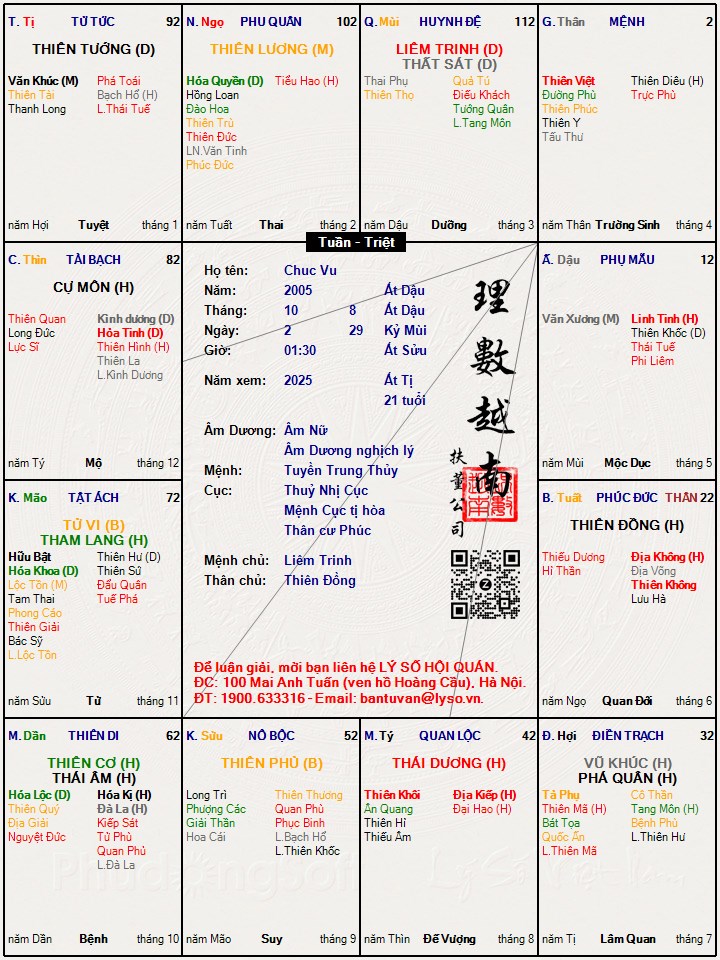 T. Tị TỬ TỨC 92
THIÊN TƯỚNG (D)
Văn Khúc (M) Phá Toái
Thiên Tài Bạch Hổ (H)
Thanh Long L.Thái Tuế
năm Hợi Tuyệt tháng 1
N. Ngọ PHU QUÂN 102
THIÊN LƯƠNG (M)
Hóa Quyền (D) Tiểu Hao (H)
Hồng Loan
Đào Hoa
Thiên Trù
Thiên Đức
LN.Văn Tinh
Phúc Đức
năm Tuất Thai tháng 2
Q. Mùi HUYNH ĐỆ 112
LIÊM TRINH (D)
THẤT SÁT (D)
Thai Phụ Quả Tú
Thiên Thọ Điếu Khách
Tướng Quân
L.Tang Môn
năm Dậu Dưỡng tháng 3
G. Thân MỆNH 2
Thiên Việt Thiên Diêu (H)
Đường Phù Trực Phù
Thiên Phúc
Thiên Y
Tấu Thư
năm Thân Trường Sinh tháng 4
Tuần - Triệt
C. Thìn TÀI BẠCH 82
CỰ MÔN (H)
Thiên Quan Kình dương (D)
Long Đức Hỏa Tinh (D)
Lực Sĩ Thiên Hình (H)
Thiên La
L.Kình Dương
năm Tý Mộ tháng 12
Họ tên: Chuc Vu
Năm: 2005 Ất Dậu
Tháng: 10 8 Ất Dậu
Ngày: 2 29 Kỷ Mùi
Giờ: 01:30 Ất Sửu
Năm xem: 2025 Ất Tị
21 tuổi
Âm Dương: Âm Nữ
Âm Dương nghịch lý
Mệnh: Tuyền Trung Thủy
Cục: Thuỷ Nhị Cục
Mệnh Cục tị hòa
Thân cư Phúc
Mệnh chủ: Liêm Trinh
Thân chủ: Thiên Đồng
理數越南
扶董公司
Để luận giải, mời bạn liên hệ LÝ SỐ HỘI QUÁN.
ĐC: 100 Mai Anh Tuấn (ven hồ Hoàng Cầu), Hà Nội.
ĐT: 1900.633316 - Email: bantuvan@lyso.vn.
Ấ. Dậu PHỤ MẪU 12
Văn Xương (M) Linh Tinh (H)
Thiên Khốc (D)
Thái Tuế
Phi Liêm
năm Mùi Mộc Dục tháng 5
K. Mão TẬT ÁCH 72
TỬ VI (B)
THAM LANG (H)
Hữu Bật Thiên Hư (D)
Hóa Khoa (D) Thiên Sứ
Lộc Tồn (M) Đẩu Quân
Tam Thai Tuế Phá
Phong Cáo
Thiên Giải
Bác Sỹ
L.Lộc Tồn
năm Sửu Tử tháng 11
B. Tuất PHÚC ĐỨC THÂN 22
THIÊN ĐỒNG (H)
Thiếu Dương Địa Không (H)
Hỉ Thần Địa Võng
Thiên Không
Lưu Hà
năm Ngọ Quan Đới tháng 6
M. Dần THIÊN DI 62
THIÊN CƠ (H)
THÁI ÂM (H)
Hóa Lộc (D) Hóa Kị (H)
Thiên Quý Đà La (H)
Địa Giải Kiếp Sát
Nguyệt Đức Tử Phù
Quan Phủ
L.Đà La
năm Dần Bệnh tháng 10
K. Sửu NÔ BỘC 52
THIÊN PHỦ (B)
Long Trì Thiên Thương
Phượng Các Quan Phù
Giải Thần Phục Binh
Hoa Cái L.Bạch Hổ
L.Thiên Khốc
năm Mão Suy tháng 9
M. Tý QUAN LỘC 42
THÁI DƯƠNG (H)
Thiên Khôi Địa Kiếp (H)
Ân Quang Đại Hao (H)
Thiên Hỉ
Thiếu Âm
năm Thìn Đế Vượng tháng 8
Đ. Hợi ĐIỀN TRẠCH 32
VŨ KHÚC (H)
PHÁ QUÂN (H)
Tả Phụ Cô Thần
Thiên Mã (H) Tang Môn (H)
Bát Tọa Bệnh Phù
Quốc Ấn L.Thiên Hư
L.Thiên Mã
năm Tị Lâm Quan tháng 7